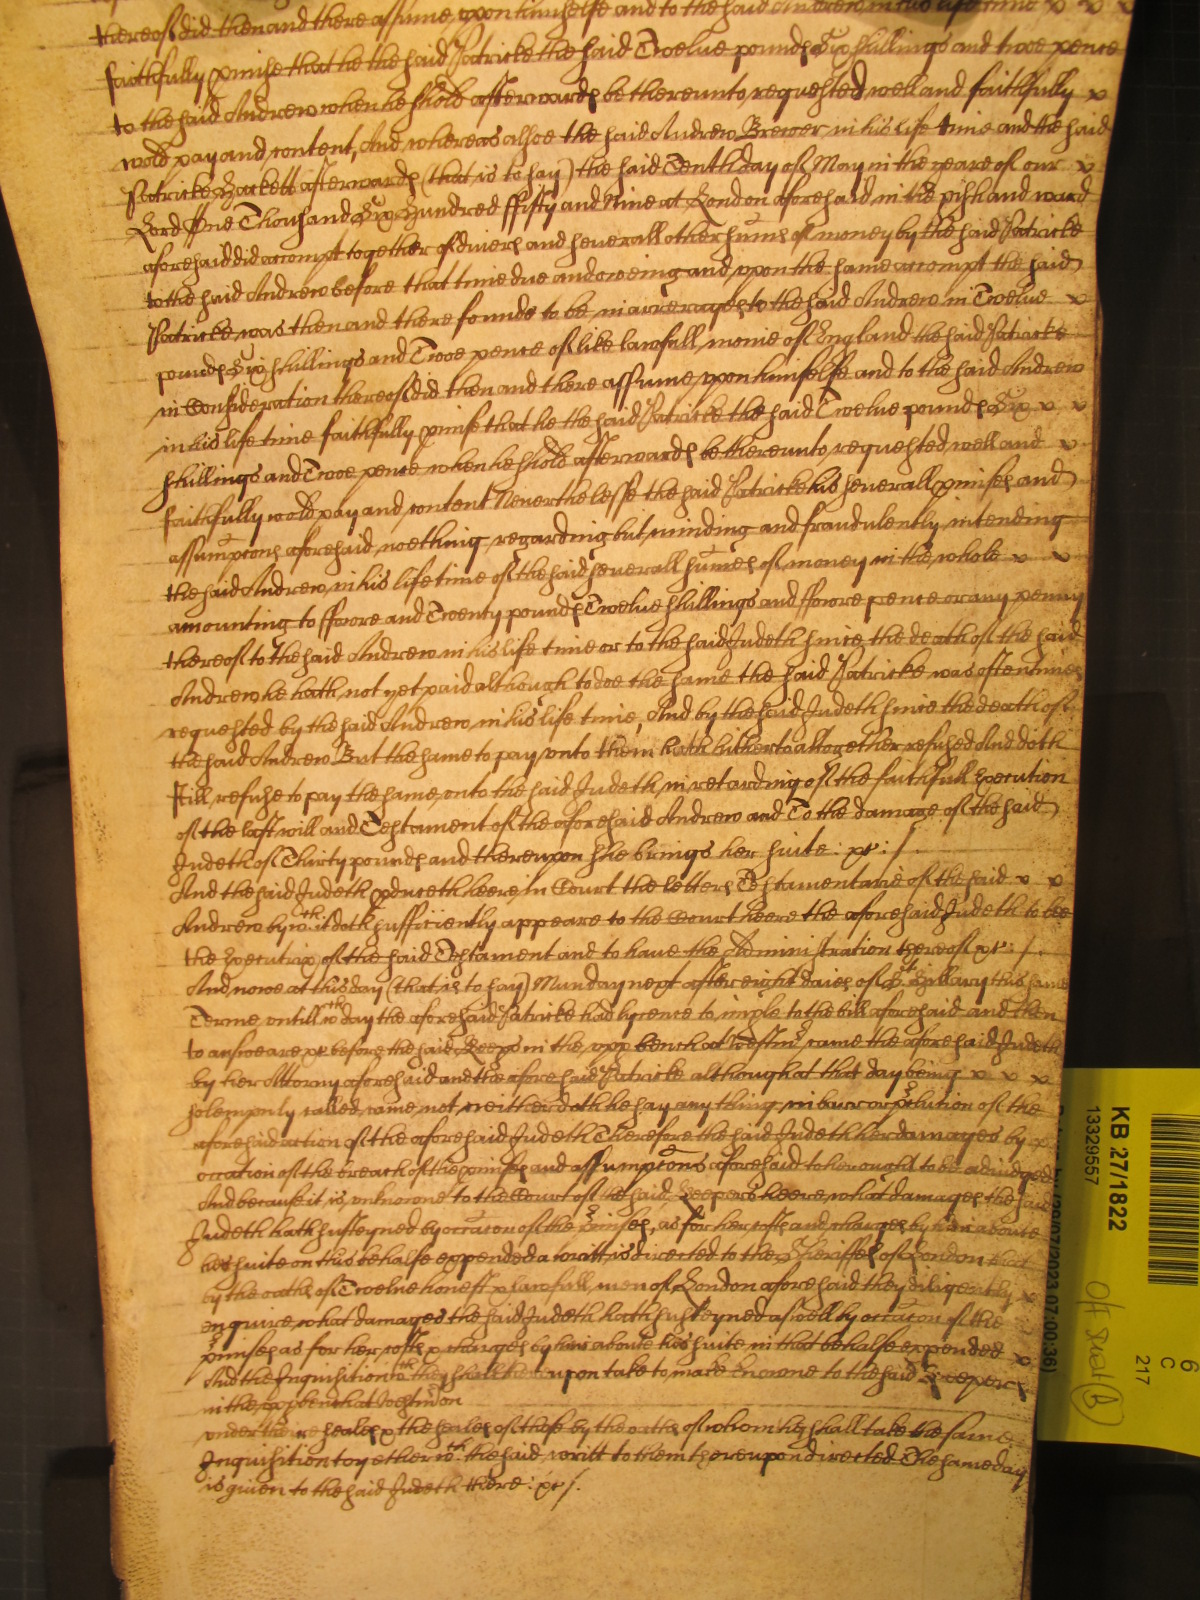 thereof did then and there assume upon himselfe and to the said Andrew in his life time
faithfully pmise that he the said Patricke the said Twelve pounds Six shillings and twoe pence
to the said Andrew when he shold afterwards be thereunto requested well and faithfully
wold pay and content, And whereas alsoe the said Andrew Brewer in his life time and the said
Patricke Hackett afterwards (that is to say) the said Tenth day of May in the yeare of our
Lord One Thousand Six Hundred ffifty and Nine at London aforesaid in the pish and ward
aforesaid did accompt together of divers and severall other sums of money by the said Patricke
to the said Andrew before that time due and oweing and upon the same accompt the said
Patricke was then and there founde to be in arrerages to the said Andrew in Twelve
pounds Six shillings and Twoe pence of like lawfull monie of England the said Patricke
in Consideration thereof did then and there assume upon himselfe and to the said Andrew
in his life time faithfully pmise that he the said Patricke the said Twelve pounds Six
shillings and Twoe pence when he shold afterwards be thereunto requested well and
faithfully wold pay and content Neverthelesse the said Patricke his severall pmises and
assumpcons aforesaid noething regarding but minding and fraudulently intending
the said Andrew in his life time of the said severall sumes of money in the whole
amounting to ffowre and Twenty pounds Twelve shillings and ffowre pence or any penny
thereof to the said Andrew in his life time or to the said Judeth since the death of the said
Andrew he hath not yet paid although to doe the same the said Patricke was oftentimes
requested by the said Andrew in his life time, And by the said Judeth since the death of
the said Andrew But the same to pay unto them hath hitherto altogether refused And doth
still refuse to pay the same unto the said Judeth in retarding of the faithfull Execution
of the last will and Testament of the aforesaid Andrew and To the damage of the said
Judeth of Thirty pounds and thereupon she brings her suite : xc : /
And the said Judeth pduceth heere in Court the letters Testamentarie of the said
Andrew by wch it doth sufficiently appeare to the Court heere the aforesaid Judeth to bee
the Executrix of the said Testament and to have the Administration thereof xc : / .
And nowe at this day (that is to say) Munday next after eight daies of St Hillary this same
Terme, untill wch day the aforesaid Patricke had lycence to imple to the bill aforesaid and then
to answeare xc before the said Keeps in the upp bench at Westmr came the aforesaid Judeth
by her Attorny aforesaid and the aforesaid Patricke although at that day being
solempnly called came not, neither doth he say any thing in barr or pclution of the
aforesaid action of the aforesaid Judeth Therefore the said Judeth her damages by
occation of the breach of the pmises and assumpcons aforesaid to her ought to be adiudged
And because it is unknowne to the Court of the said Keepers heere, what damages the said
Judeth hath susteyned by occacon of the pmises, as for her costs and charges by her aboute
her suite on this behalfe expended a writt is directed to the Sheriffes of London that
by the oaths of Twelve honest & lawfull men of London aforesaid they diligently
enquire, what damages the said Judeth hath susteyned aswell by occacon of the
pmises as for her costs & charges by him aboute his suite in that behalfe expended
And the Inquisition wch they shall thereupon take to make knowne to the said Keepers
in the upp bench at Westmr on
under their seales & the seales of those by the oaths of whom they shall take the same
Inquisition together wth the said writt to them thereupon directed The same day
is given to the said Judeth there : xc / .
KB 27/1822
13329557
6
C
217
(20/07/2023 07:00:36)